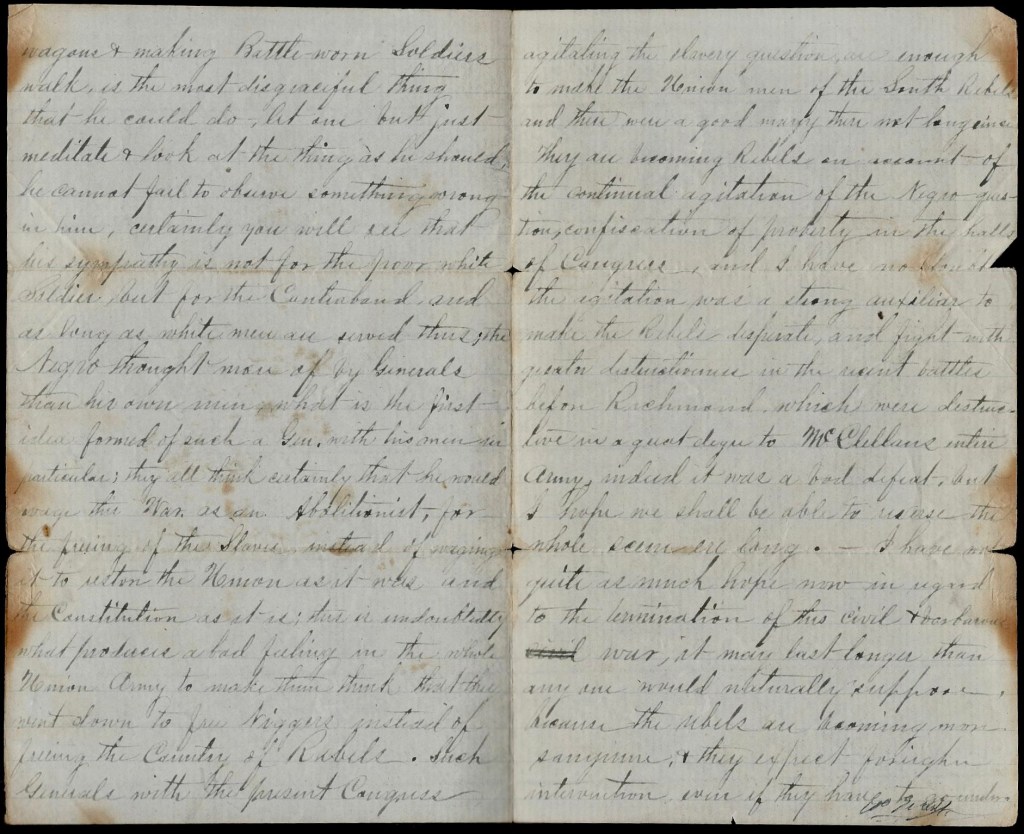 wagons & making Battle-worn Soldiers
walk, is the most disgraceful thing
that he could do, let one but just
meditate & look at the thing as he should,
he cannot fail to observe something wrong
in him, certainly you will see that
his sympathy is not for the poor white
Soldier, but for the Contraband, and
as long as white men are served thus; the
Negro thought more of by Generals
than his own men, what is the first
idea formed of such a Gen. with his men in
particular; they all think certainly that he would
wage this War as an Abolitionist, for
the freeing of the Slaves instead of waging
it to restore the Union as it was and
the Constitution as it is; this is undoubtedly
what produces a bad feeling in the whole
Union Army to make them think that they
went down to free Niggers instead of
freeing the Country of Rebels. Such
Generals with the present Congress
agitating the slavery question, are enough
to make the Union men of the South Rebels
and there were a good many there not long since
They are becoming Rebels on account of
the continual agitation of the Negro ques-
tion, confiscation of property in the halls
of Congress, and I have no doubt
the agitation was a strong auxiliar to
make the Rebels desperate, and fight with
greater destructiveness in the recent battles
before Richmond which were destruc-
tive in a great degre to McClellans entire
Army, indeed it was a bad defeat, but
I hope we shall be able to reverse the
whole scene ere long. — I have not
quite as much hope now in regard
to the termination of this civil & barbarous
war, it may last longer than
any one would naturally suppose,
because the rebels are becoming more
sanguine, & they expect foreighn
intervention even if they have to go under.